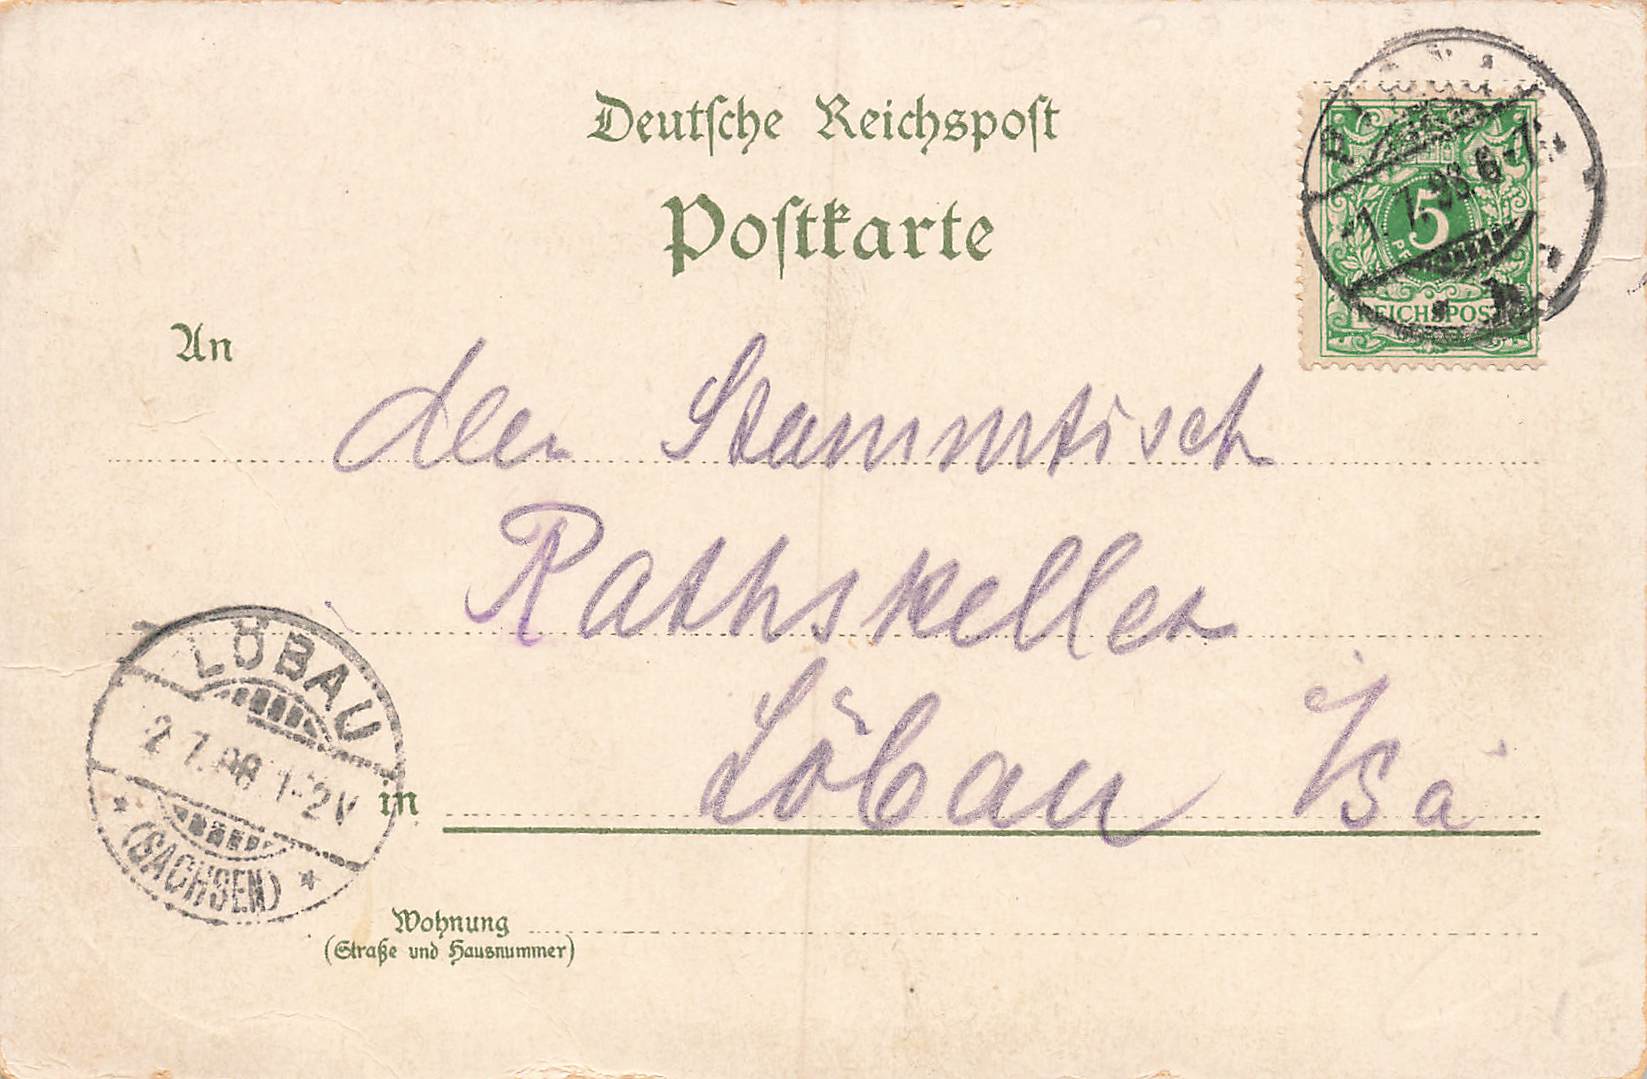 Deutsche Reichspost
Postkarte
1. 7. 98. 6-7
5
REICHSPOST
An
den Stammtisch
Rathskeller
Löbau i/Sa
LÖBAU
2 7. 98 1-2V
(SACHSEN)
in
Wohnung
(Straße und Hausnummer)